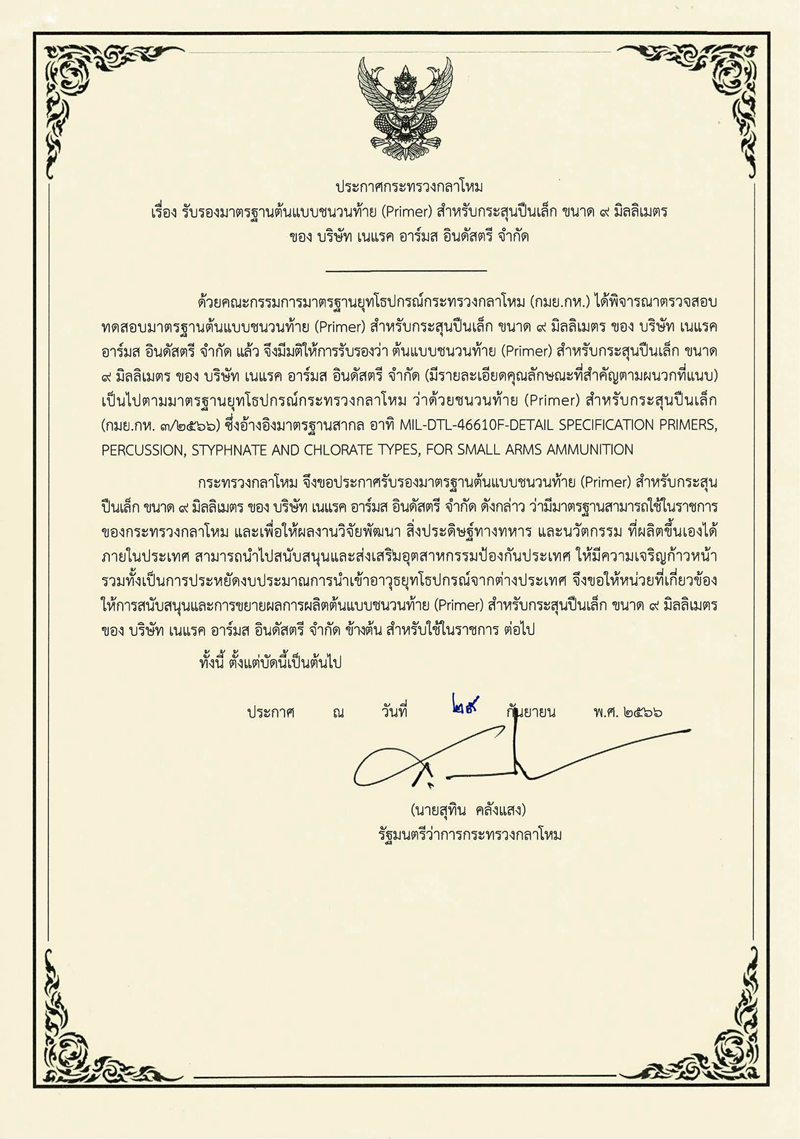 ประกาศกระทรวงกลาโหม
เรื่อง รับรองมาตรฐานต้นแบบชนวนท้าย (Primer) สำหรับกระสุนปืนเล็ก ขนาด ๙ มิลลิเมตร
ของ บริษัท เนแรค อาร์มส อินดัสตรี จำกัด
ด้วยคณะกรรมการมาตรฐานยุทโธปกรณ์กระทรวงกลาโหม (กมย.กห.) ได้พิจารณาตรวจสอบ
ทดสอบมาตรฐานต้นแบบชนวนท้าย (Primer) สำหรับกระสุนปืนเล็ก ขนาด ๙ มิลลิเมตร ของ บริษัท เนแรค
อาร์มส อินดัสตรี จำกัด แล้ว จึงมีมติให้การรับรองว่า ต้นแบบชนวนท้าย (Primer) สำหรับกระสุนปืนเล็ก ขนาด
๙ มิลลิเมตร ของ บริษัท เนแรค อาร์มส อินดัสตรี จำกัด (มีรายละเอียดคุณลักษณะที่สำคัญตามผนวกที่แนบ)
เป็นไปตามมาตรฐานยุทโธปกรณ์กระทรวงกลาโหม ว่าด้วยชนวนท้าย (Primer) สำหรับกระสุนปืนเล็ก
(กมย.กห. ๓/๒๕๖๖) ซึ่งอ้างอิงมาตรฐานสากล อาทิ MIL-DTL-46610F-DETAIL SPECIFICATION PRIMERS,
PERCUSSION, STYPHNATE AND CHLORATE TYPES, FOR SMALL ARMS AMMUNITION
กระทรวงกลาโหม จึงขอประกาศรับรองมาตรฐานต้นแบบชนวนท้าย (Primer) สำหรับกระสุน
ปืนเล็ก ขนาด ๙ มิลลิเมตร ของ บริษัท เนแรค อาร์มส อินดัสตรี จำกัด ดังกล่าว ว่ามีมาตรฐานสามารถใช้ในราชการ
ของกระทรวงกลาโหม และเพื่อให้ผลงานวิจัยพัฒนา สิ่งประดิษฐ์ทางทหาร และนวัตกรรม ที่ผลิตขึ้นเองได้
ภายในประเทศ สามารถนำไปสนับสนุนและส่งเสริมอุตสาหกรรมป้องกันประเทศ ให้มีความเจริญก้าวหน้า
รวมทั้งเป็นการประหยัดงบประมาณการนำเข้าอาวุธยุทโธปกรณ์จากต่างประเทศ จึงขอให้หน่วยที่เกี่ยวข้อง
ให้การสนับสนุนและการขยายผลการผลิตต้นแบบชนวนท้าย (Primer) สำหรับกระสุนปืนเล็ก ขนาด ๙ มิลลิเมตร
ของ บริษัท เนแรค อาร์มส อินดัสตรี จำกัด ข้างต้น สำหรับใช้ในราชการ ต่อไป
ทั้งนี้ ตั้งแต่บัดนี้เป็นต้นไป
ประกาศ ณ วันที่ กันยายน พ.ศ. ๒๕๖๖
(นายสุทิน คลังแสง)
รัฐมนตรีว่าการกระทรวงกลาโหม